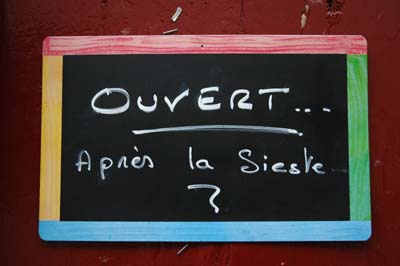 OUVERT...
Après la Sieste...
?